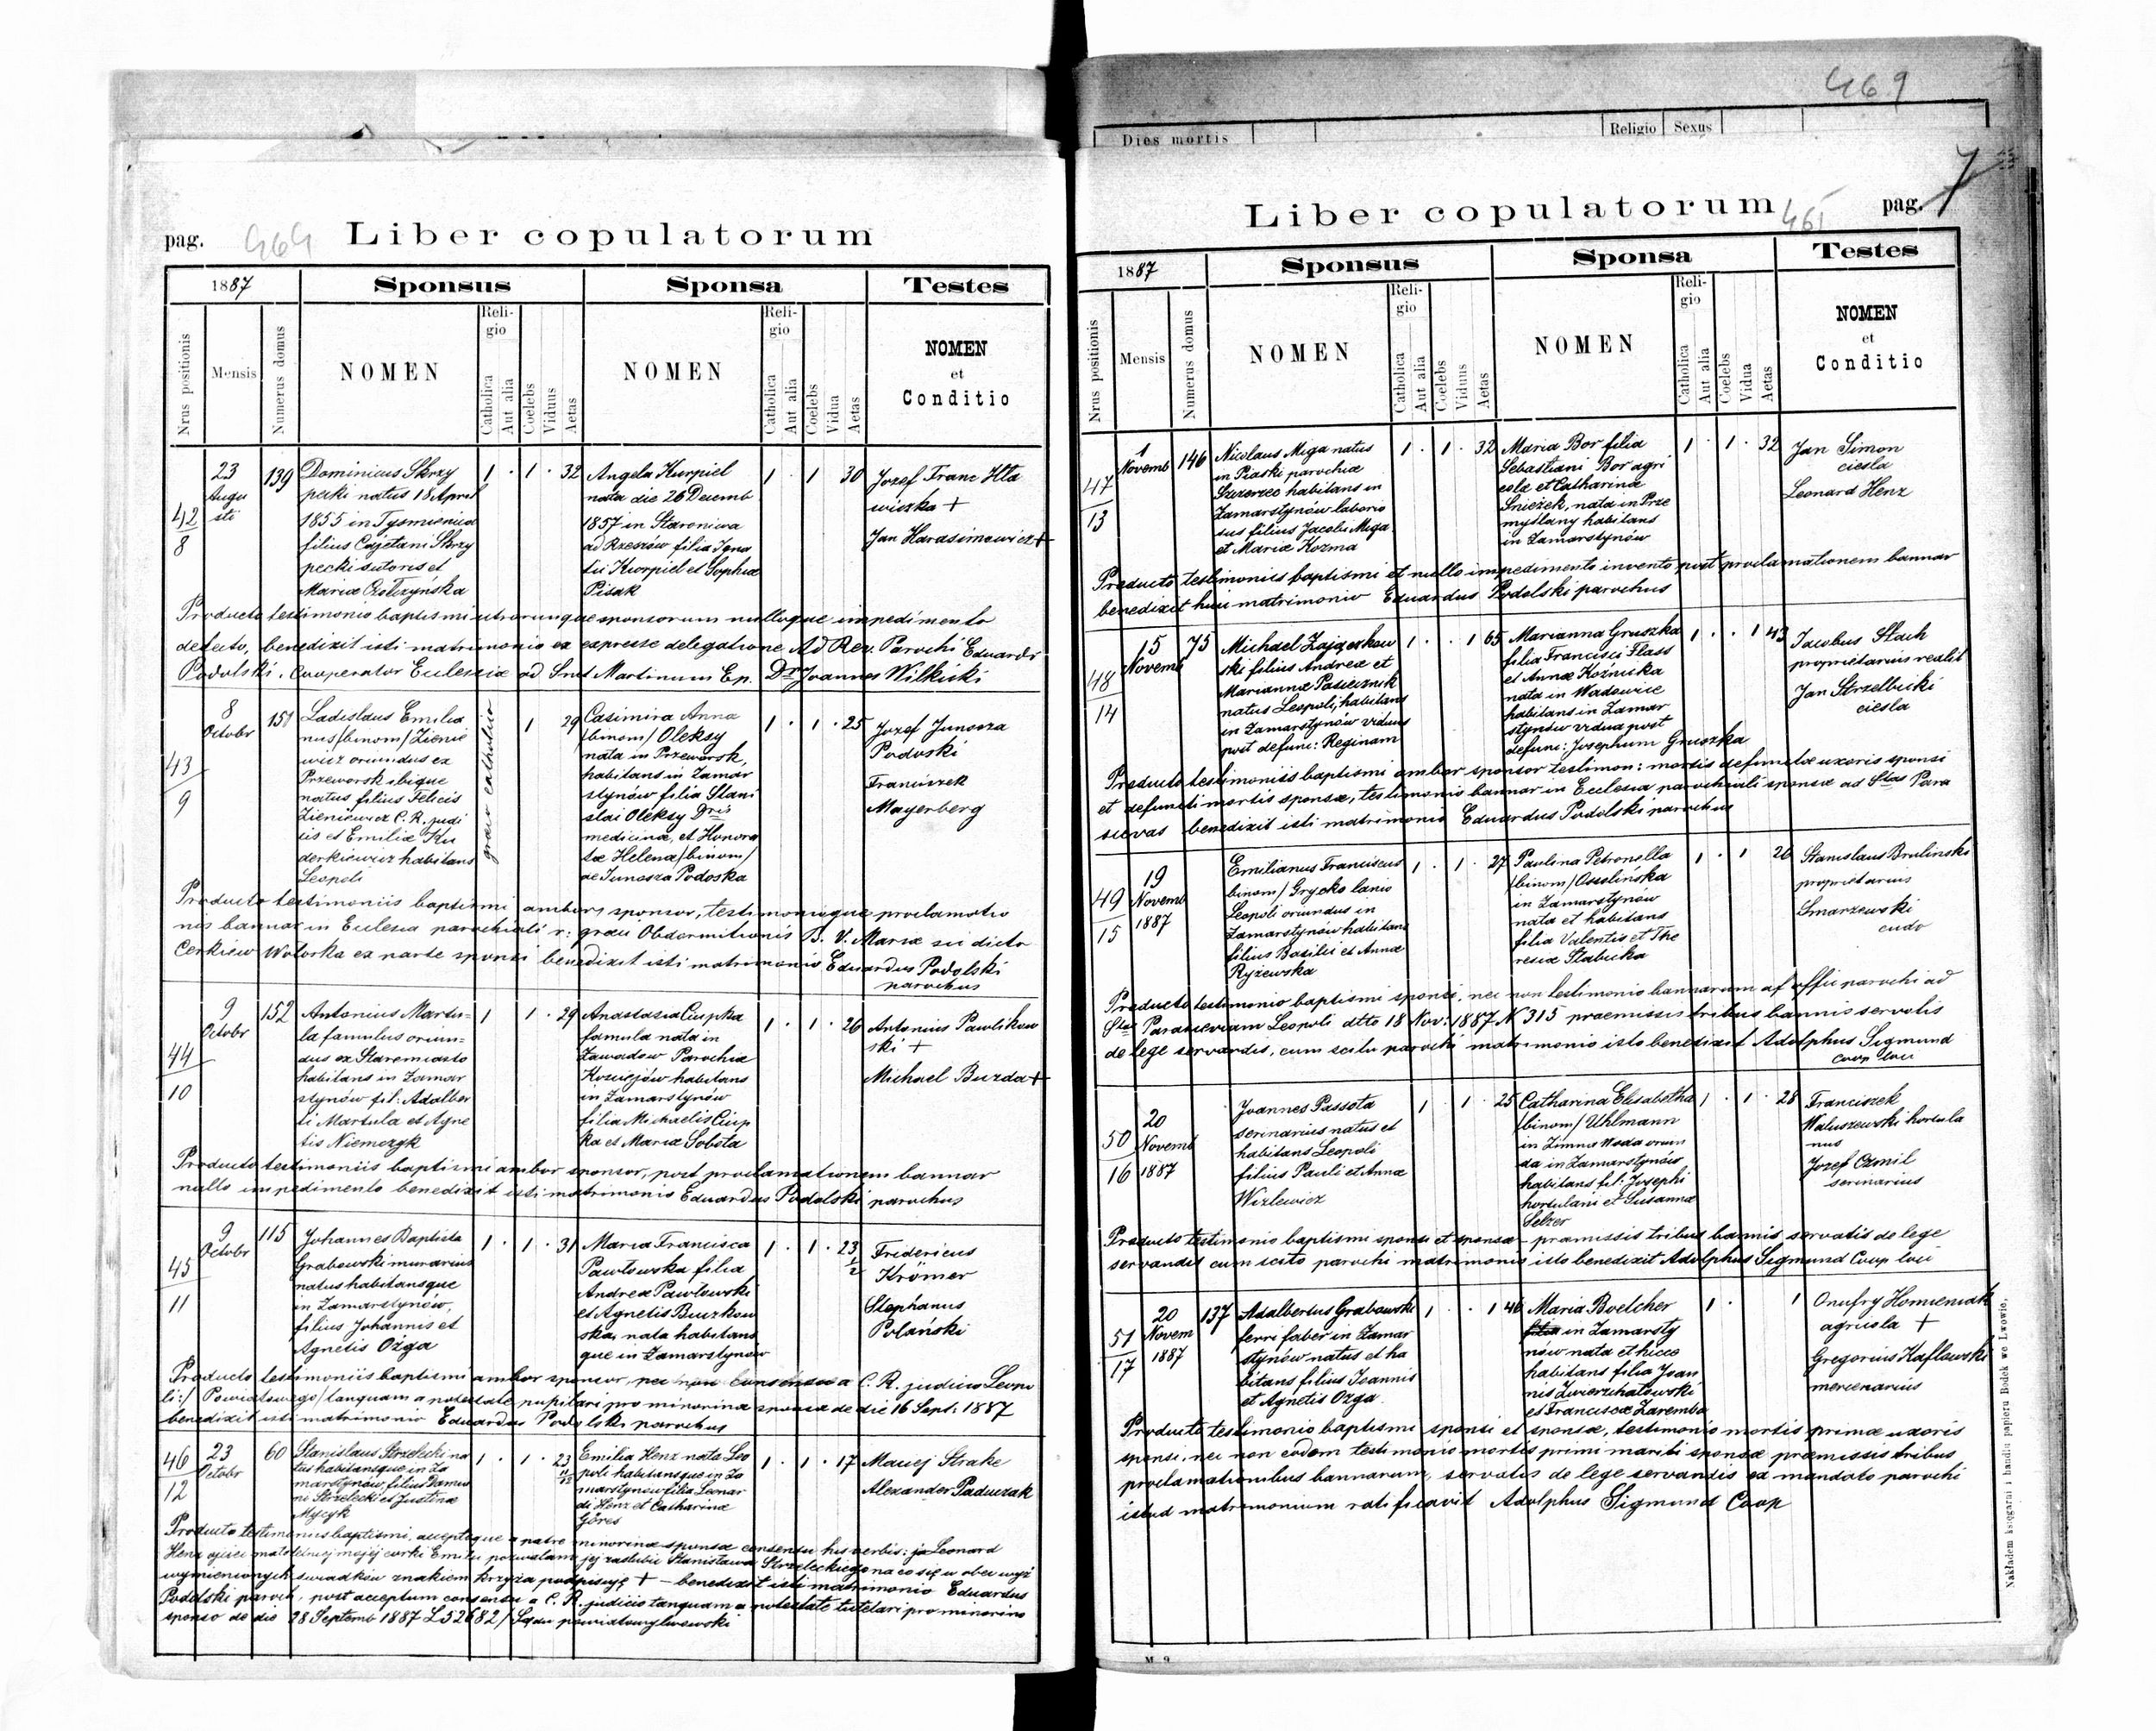 pag. 464 Liber copulatorum
1887 Sponsus Sponsa Testes
Nrus positionis Mensis Numerus domus NOMEN Religio Catholica Aut alia Coelebs Viduus Aetas NOMEN Religio Catholica Aut alia Coelebs Vidua Aetas NOMEN et Conditio
42/8
23 Augu
sti
139
Dominicus Skrzy
pecki natus 18 April
1855 in Tysmienica
filius Cajetani Skrzy
pecki sutoris et
Mariæ
1 · 1 · 32
Angela Kurpiel
nata die 26 Decemb
1857 in Staroniwa
ad Rzeszów filia Igna
tii Kurpiel et Sophiæ
Pisak
1 · 1 30
Jozef Franc Hła
wiczka +
Jan Harasimowicz +
Producto testimonio baptismi utriorumque sponsorum nulloque impedimento
detecto, benedixit isti matrimonio ex expresse delegatione Ad Rev. Parochi Eduardi
Podolski. Cooperator Ecclesiæ ad Snct Martinum Ep. Dr Joannes Wilkicki
43/9
8
Octobr
151
Ladislaus Emilia
nus /binom/ Zienie
wicz oriundus ex
Przeworsk ibique
natus filius Felicis
Zieniewicz C. R. judi
cis et Emiliæ Ku
derkiewicz habitans
Leopoli
græco catholico
1 29
Casimira Anna
/binom/ Oleksy
nata in Przeworsk,
habitans in Zamar
stynów filia Stani
slai Oleksy Dris
medicinæ, et Honora
tæ Helena /binom/
de Junosza Podoska
1 · 1 · 25
Jozef Junosza
Podoski
Franciszek
Mayerberg
Producto testimoniis baptismi ambor sponsor, testimonioque proclamatio
nis bannar in Eclesia parochiali r: græci Obdormitionis B. V. Mariæ sic dicto
Cerkiew Wołoska ex parte sponsi benedixit isti matrimonio Eduardus Podolski
parochus
44/10
9
Octobr
152
Antonius Martu=
la famulus oriun=
dus ex Staremiasto
habitans in Zamar
stynów fil: Adalber
ti Martula et Agne
tis Niemczyk
1 1 · 29
Anastasia Ciupka
famula nata in
Zawadow Parochiæ
habitans
in Zamarstynów
filia Michaelis Ciup
ka et Mariæ Sobota
1 · 1 · 26
Antonius Pawlikow
ski +
Michael Buzda +
Producto testimoniis baptismi ambor sponsor, post proclamationem bannar
nullo impedimento benedixit isti matrimonio Eduardus Podolski parochus
45/11
9
Octobr
115
Johannes Baptista
Grabowski murarius
natus habitansque
in Zamarstynów,
filius Johannis et
Agnetis Ożga
1 · 1 · 31
Maria Francisca
Pawłowska filia
Andreæ Pawłowski
et Agnetis Buczkow
ska, nata habitans
que in Zamarstynow
1 · 1 · 23 1/2
Fridericus
Krömer
Stephanus
Polański
Producto testimoniis baptismi ambor sponsor, nec non consensu a C. R. judicio Leopo
li:/ Powiatowego/ tanquam a potestate pupilari pro minorina sponsa de die 16 Sept: 1887
benedixit isti matrimonio Eduardus Podolski parochus
46/12
23
Octobr
60
Stanislaus Strzelecki na
tus habitansque in Za
marstynów, filius Damia
ni Strzelecki et Justinæ
Mycyk
1 · 1 · 23
Emilia Henz nata Leo
poli habitansque in Za
marstynow filia Leonar
di Henz et Catharinæ
Göres
1 · 1 · 17
Maciej Strake
Alexander Paduczak
Producto testimoniis baptismi, acceptoque a patre minorinæ sponsæ consensu his verbis: ja Leonard
Henz ojciec małoletniej mojej córki Emilii pozwalam jej zaślubić Stanisława Strzeleckiego na co się w obec wyż
wymienionych świadków znakiem krzyża podpisuję + – benedixit isti matrimonio Eduardus
Podolski paroch, post acceptum consensu a C. R. judicio tanquam a potestate tutelari pro minorino
sponso de die 28 Septemb 1887 L 52682 / Sądu powiatowy lwowski
469
Dies mortis Religio Sexus
7
Liber copulatorum 465 pag.
1887 Sponsus Sponsa Testes
Nrus positionis Mensis Numerus domus NOMEN Religio Catholica Aut alia Coelebs Viduus Aetas NOMEN Religio Catholica Aut alia Coelebs Vidua Aetas NOMEN et Conditio
47/13
1
Novemb
146
Nicolaus Miga natus
in Piaski parochiæ
Szczerzec habitans in
Zamarstynów laborio
sus filius Jacobi Miga
et Mariæ Kozma
1 · · 1 · 32
Maria Bor filia
Sebastiani Bor agri
colæ et Catharinæ
Śnieżek, nata in Prze
myślany habitans
in Zamarstynów
1 · 1 · 32
Jan Simon
ciesla
Leonard Henz
Producto testimoniis baptismi et nullo impedimento invento post proclamationem bannar
benedixit huic matrimonio Eduardus Podolski parochus
48/14
15
Novemb
75
Michael Zajączkow
ski filius Andreæ et
Mariannæ Pasiecznik
natus Leopoli, habitans
in Zamarstynów viduus
post defunc: Reginam
1 · · 1 65
Marianna Gruszka
filia Francisci Flass
et Annæ Koźnicka
nata in Wadowice
habitans in Zamar
stynów vidua post
defunc: Josephum Gruszka
1 · · 1 43
Jacobus Stach
proprietarius realit
Jan Strzelbicki
ciesla
Producto testimoniis baptismi ambor sponsor testimon: mortis defunctæ uxoris sponsi
et defuncti mortis sponsæ, testimonio bannar in Eclesia parochiali sponsæ ad Stas Para
scevas benedixit isti matrimonio Eduardus Podolski parochus
49/15
19
Novemb
1887
Emilianus Franciscus
binom/ Grycko lanio
Leopoli oriundus in
Zamarstynów habitans
filius Basilii et Annæ
Ryżewska
1 · 1 · 27
Paulina Petronella
/binom/ Ossolińska
in Zamarstynów
nata et habitans
filia Valentis et The
resiæ Stabicka
1 · 1 26
Stanislaus Brulinski
proprietarius
Smarzewski
cudo
Producto testimonio baptismi sponsi, nec non testimonio bannarum af offic parochi ad
Stas Parasceviam Leopoli dtto 18 Nov: 1887 N 315 praemissis tribus bannis servatis
de lege servandis, cum scitu parochi matrimonio isto benedixit Adolphus Sigmund
coop loci
50/16
20
Novemb
1887
Joannes Passota
serinarius natus et
habitans Leopoli
filius Pauli et Annæ
Wizlewicz
1 1 · 25
Catharina Elisabetha
/binom/ Uhlmann
in Zimna Woda oriun
da in Zamarstynów
habitans fil: Josephi
hortulani et Susannæ
Selzer
1 · 1 · 28
Franciszek
Waluszewski hortula
nus
Jozef Czmil
serinarius
Producto testimonio baptismi sponsi et sponsæ – præmissis tribus bannis servatis de lege
servandis cum scito parochi matrimonio isto benedixit Adolphus Sigmund Coop loci
51/17
20
Novem
1887
137
Adalbertus Grabowski
ferri faber in Zamar
stynów natus et ha
bitans filius Joannis
et Agnetis Ozga
1 · · 1 46
Maria Boelcher
in Zamarsty
nów nata et hicce
habitans filia Joan
nis Zwierzchatowski
et Franciscæ Zaremba
1 · 1
Onufry Homieniak
agricola +
Gregorius Kaflowski
mercenarius
Producto testimonio baptismi sponsi et sponsæ, testimonio mortis primæ uxoris
sponsi, nec non eodem testimonio mortis primi mariti sponsæ præmissis tribus
proclamationibus bannarum, servatis de lege servandis ex mandato parochi
istud matrimonium ratificavit Adolphus Sigmund Coop
Nakładem księgarni i handlu papieru Bodek we Lwowie.
M 9